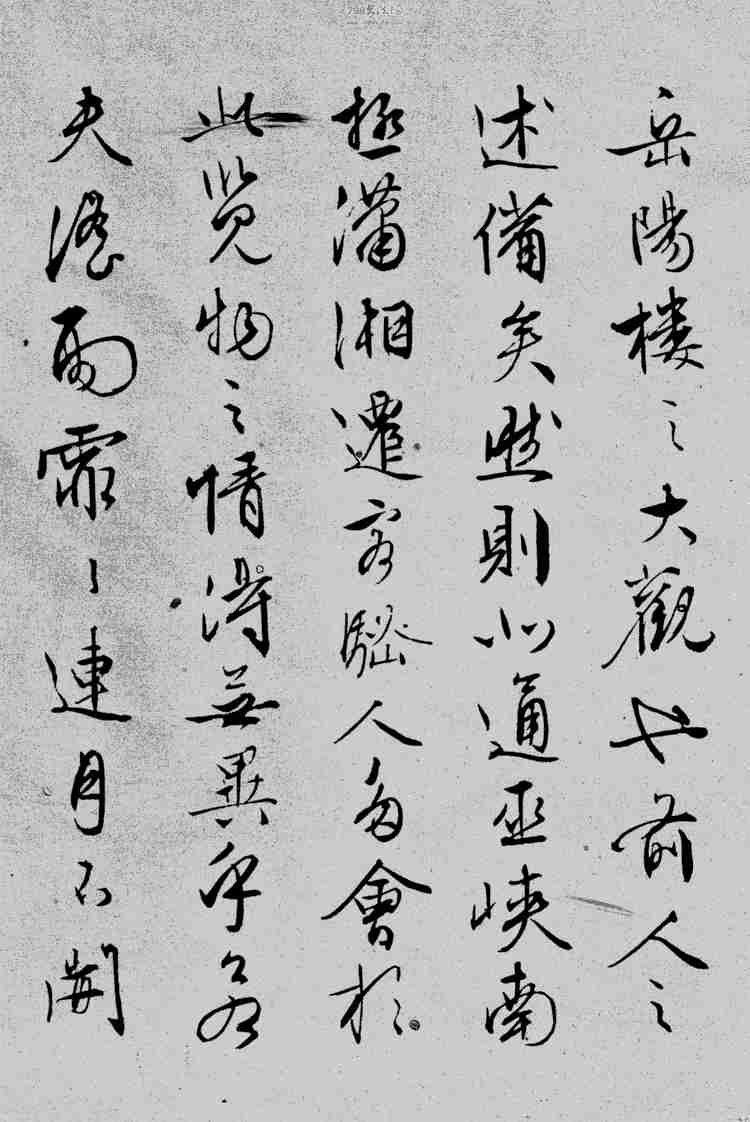 岳陽樓之大觀也前人之
述備矣然則北通巫峽南
極瀟湘遷客騷人多會於
此覽物之情得無異乎若
夫淫雨霏〻連月不開